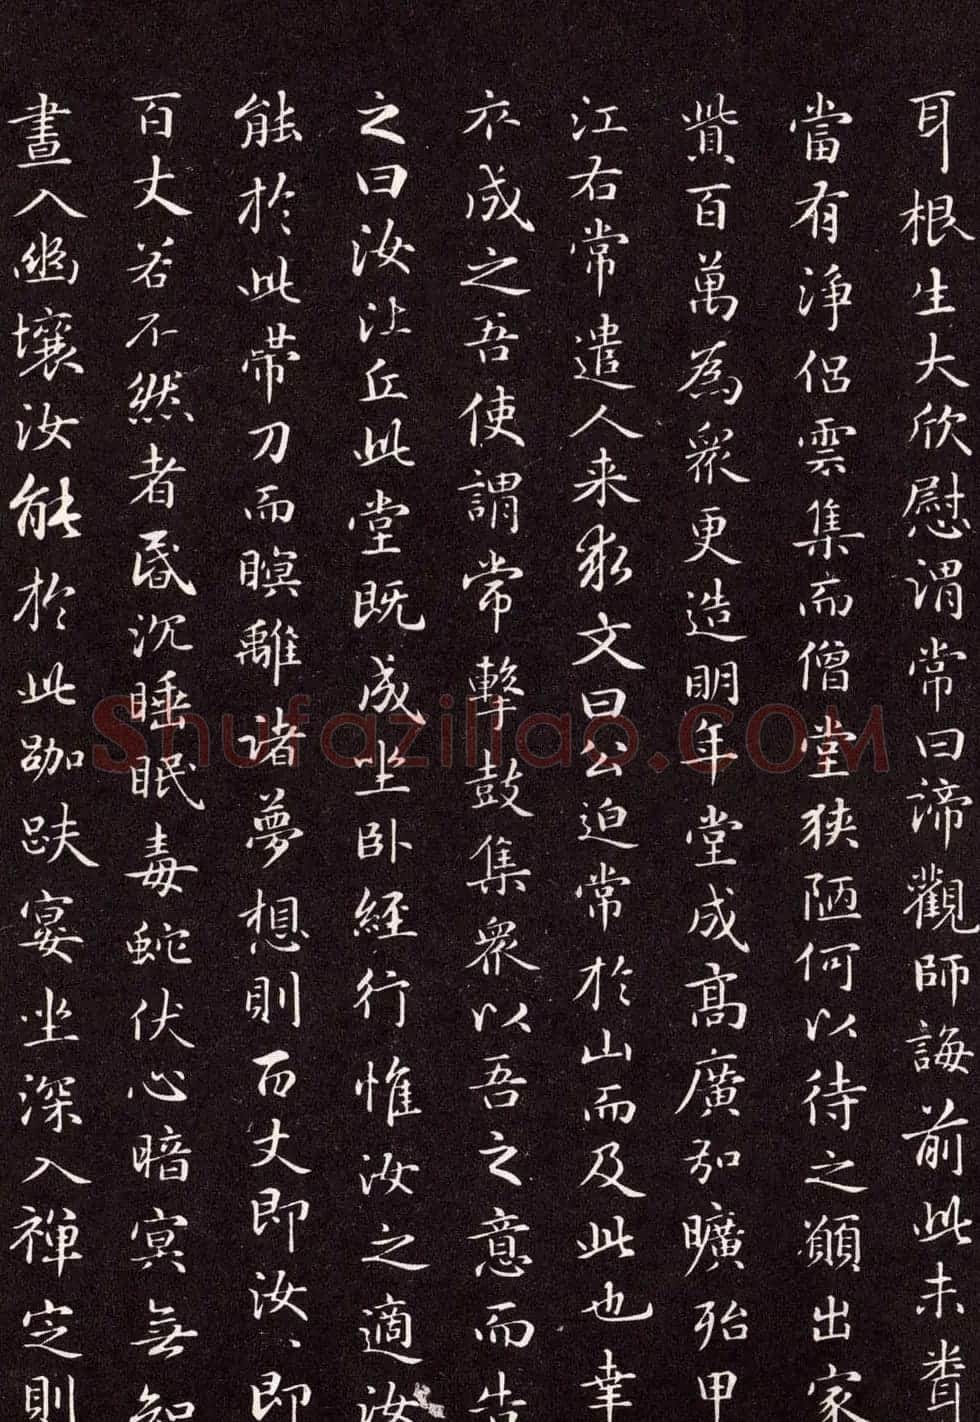 耳根生大欣慰謂常曰諦觀師誨前此未聳
當有淨侶雲集而僧堂狹陋何以待之願出家
貲百萬為眾更造明年堂成高廣知曠殆甲
江右常遣人来求文曰公迫常於山而及此也幸
衣成之吾使謂常擊鼓集眾以吾之意而告
之曰汝沚丘此堂既成坐卧經行惟汝之適汝
能於此帶刀而瞑離諸夢想則百丈即汝、即
百丈若不然者昏沉睡眠毒蛇伏心暗冥無知
晝入幽壤汝能於此跏趺宴坐深入禪定則
Shufaziliao.COM